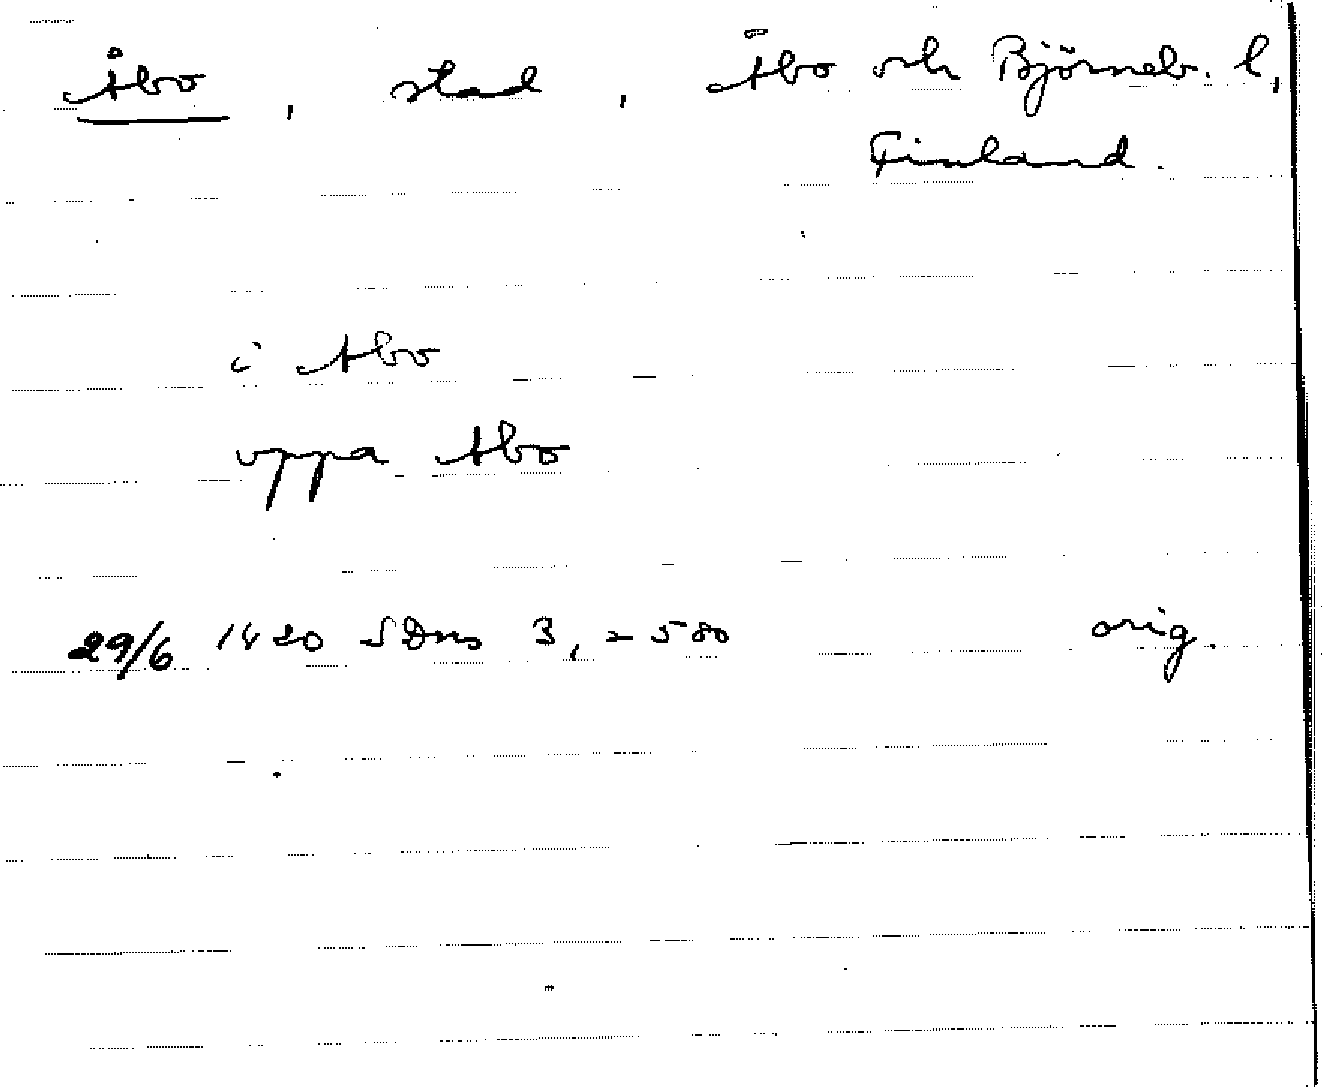 Åbo, stad, Åbo och Björneb. l,
Finland.
i Abo
vppa Abo
29/6 1420 SDns 3, = 580 orig.